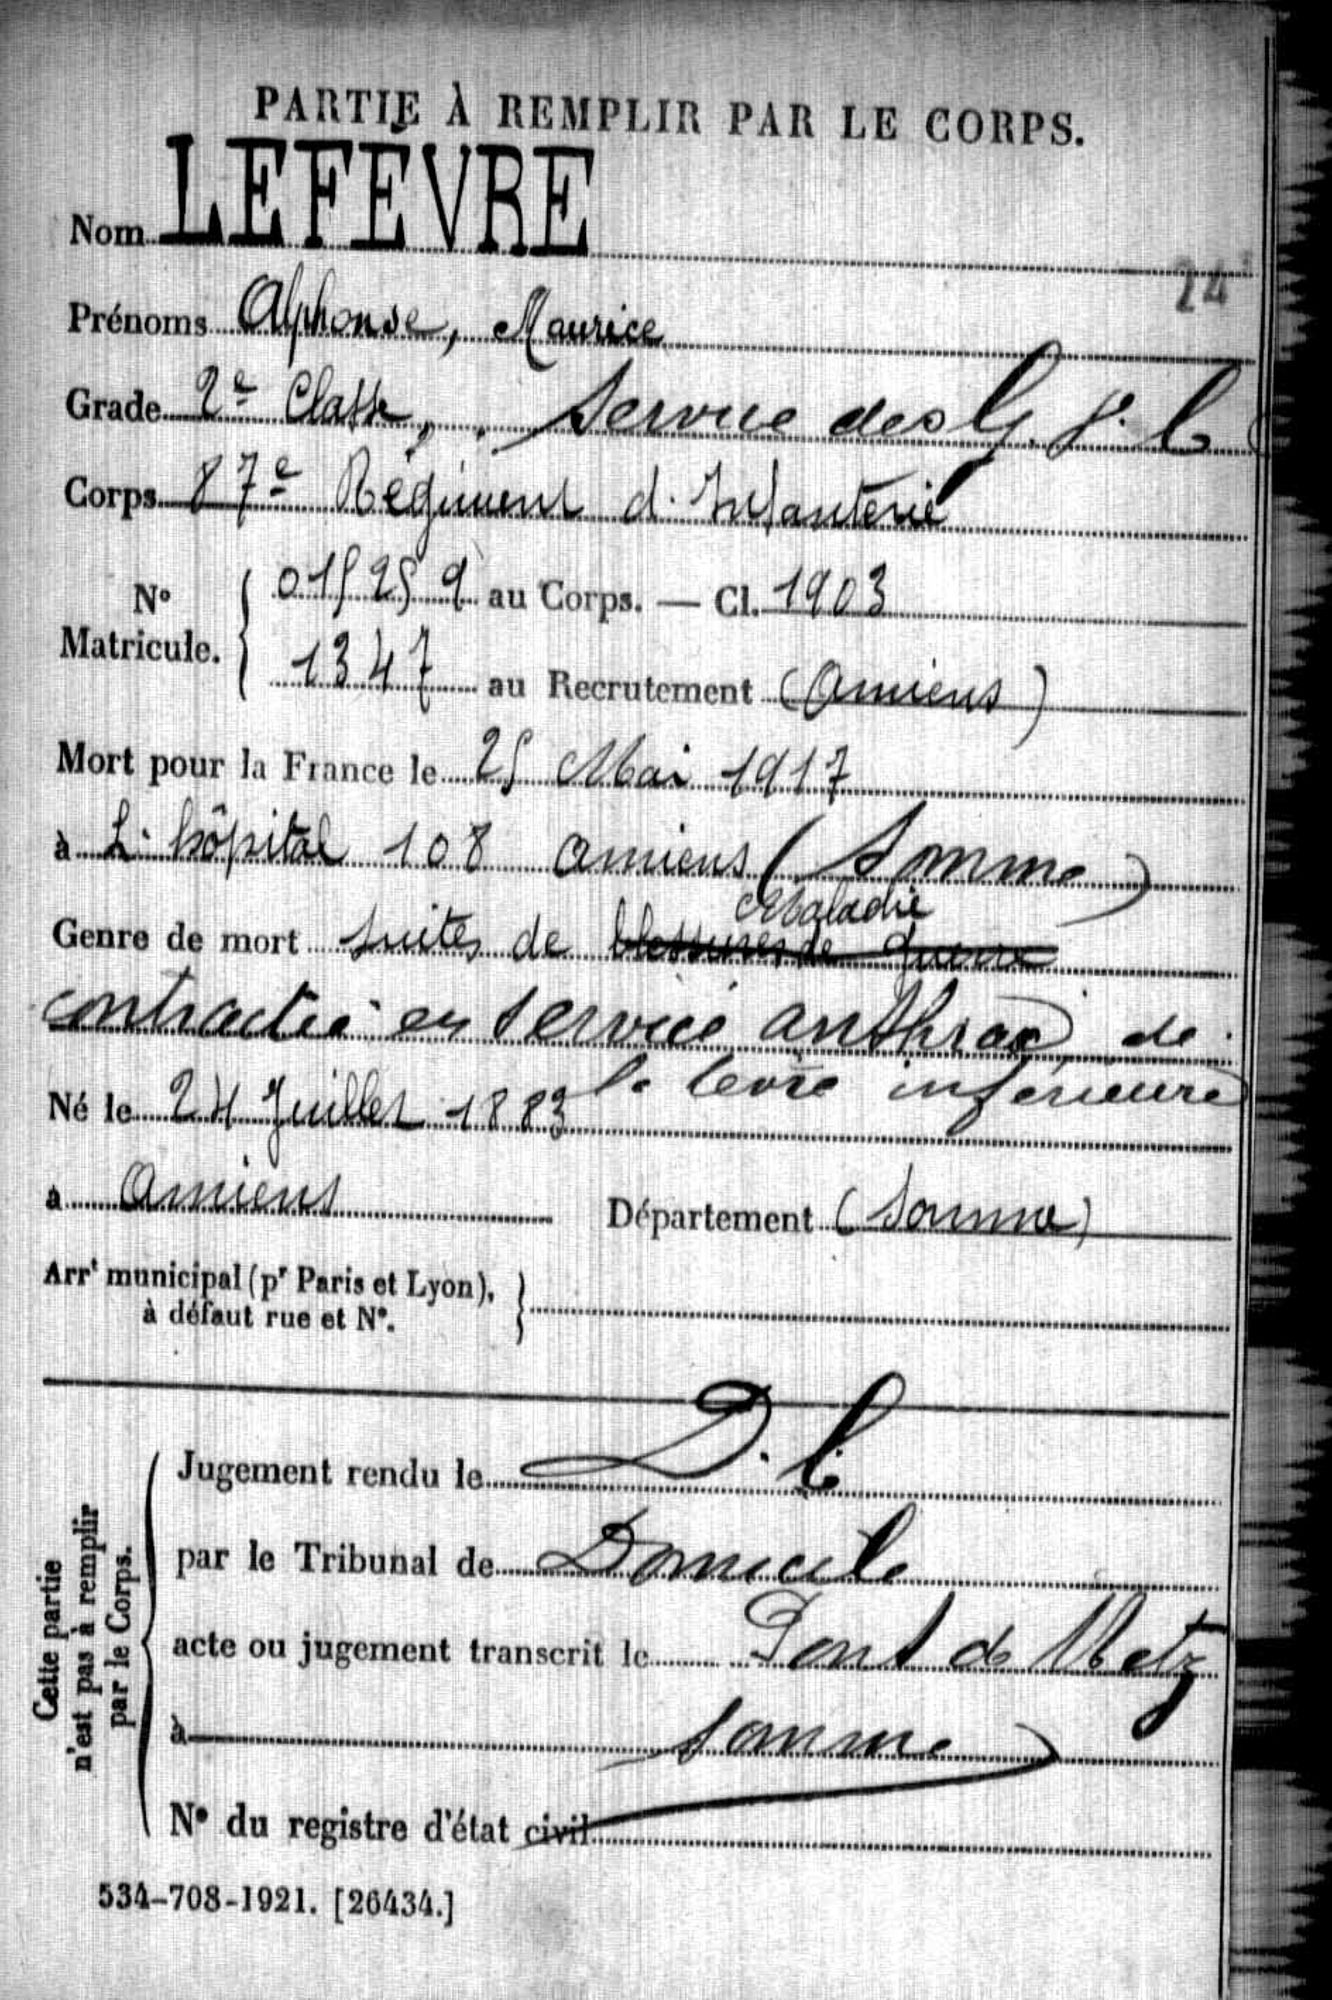 PARTIE À REMPLIR PAR LE CORPS.
Nom LEFÈVRE
24
Prénoms Alphonse, Maurice
Grade 2e Classe, Service des G. V. C
Corps 87e Régiment d'Infanterie
N° Matricule. { 015259 au Corps. — Cl. 1903
1347 au Recrutement (Amiens)
Mort pour la France le 25 Mai 1917
à L'hôpital 108 Amiens (Somme)
Maladie
Genre de mort suites de blessures de guerre
contractée en service anthrax de
la levre inférieure
Né le 24 Juillet 1883
à Amiens Département (Somme)
Arrt municipal (pr Paris et Lyon), à défaut rue et N°. }
Cette partie n'est pas à remplir par le Corps.
Jugement rendu le D. C.
par le Tribunal de Domicile
acte ou jugement transcrit le Pont de Metz
à Somme
N° du registre d'état civil
534-708-1921. [26434.]